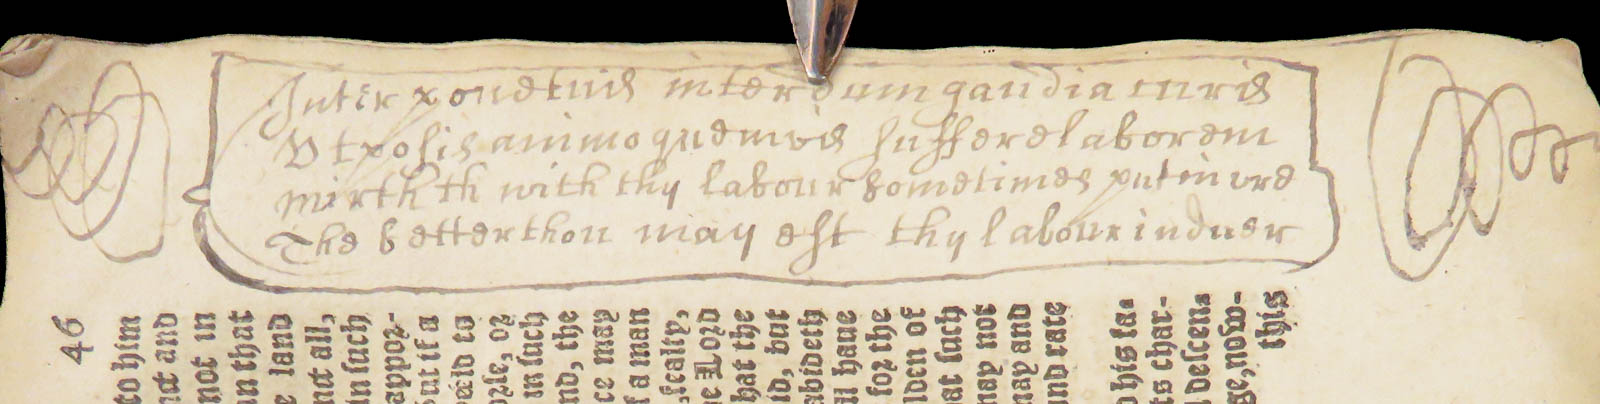 Inter pone tuis interdum gaudia curis
Ut possis animo quemvis sufferre laborem
mirth th with thy labour sometimes put in ure
The better thou mayest thy labour induer
46
to him
not and
not in
an that
e land
not all,
in such
appor-
but if a
yeild to
orle, or
in such
nd, the
ce may
f a man
fealty,
e Lord
hat the
id, but
abideth
ll haue
for the
lden of
hat such
may not
may and
and rate
d his la-
ts char-
d descen
ge, now-
this